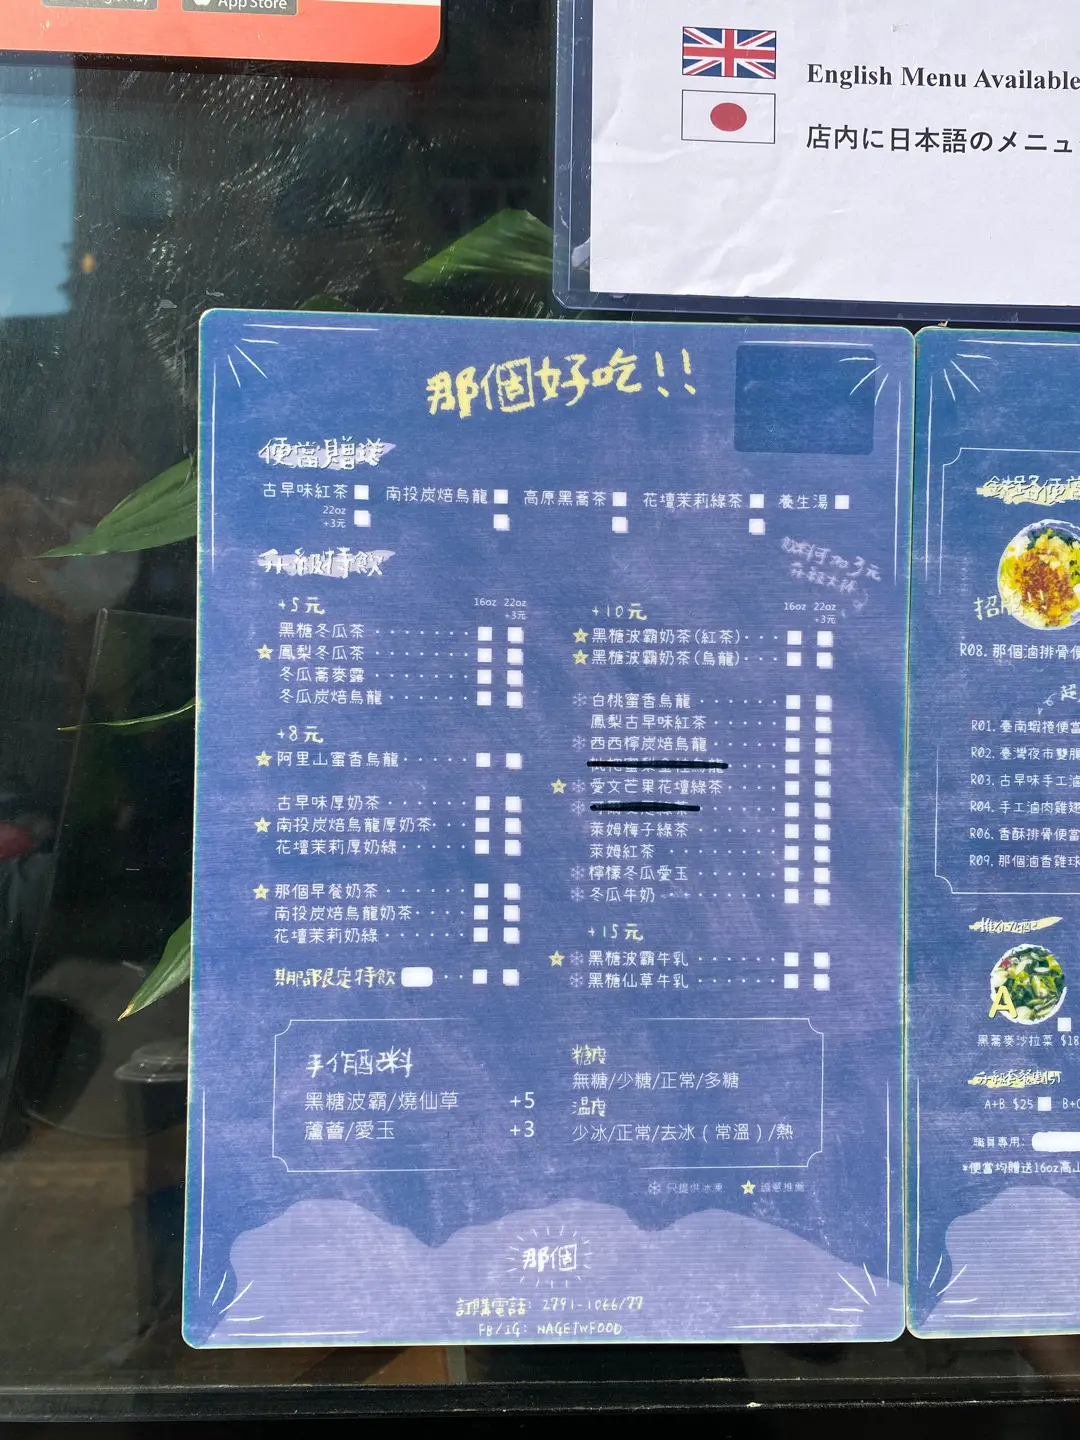 App Store
English Menu Available
店内に日本語のメニュ
那個好吃!!
便當贈送
古早味紅茶 南投炭焙烏龍 高原黑蕎茶 花壇茉莉綠茶 養生湯
22oz
+3元
升級特飲
任何加3元
+5元 16oz 22oz
+3元
黑糖冬瓜茶
鳳梨冬瓜茶
冬瓜蕎麥露
冬瓜炭焙烏龍
+8元
阿里山蜜香烏龍
古早味厚奶茶
南投炭焙烏龍厚奶茶
花壇茉莉厚奶綠
那個早餐奶茶
南投炭焙烏龍奶茶
花壇茉莉奶綠
期間限定特飲
+10元 16oz 22oz
+3元
黑糖波霸奶茶(紅茶)
黑糖波霸奶茶(烏龍)
白桃蜜香烏龍
鳳梨古早味紅茶
西西檸炭焙烏龍
愛文芒果花壇綠茶
萊姆梅子綠茶
萊姆紅茶
檸檬冬瓜愛玉
冬瓜牛奶
+15元
黑糖波霸牛乳
黑糖仙草牛乳
手作配料
黑糖波霸/燒仙草 +5
蘆薈/愛玉 +3
糖度
無糖/少糖/正常/多糖
溫度
少冰/正常/去冰(常溫)/熱
只提供冰凍 誠懇推薦
那個
訂購電話: 2791-1066/77
FB/IG: NAGEIWFOOD
鐵路便當
招牌
R08. 那個滷排骨便
超
R01. 臺南蝦捲便當
R02. 臺灣夜市雙腸
R03. 古早味手工滷
R04. 手工滷肉雞翅
R06. 香酥排骨便當
R09. 那個滷香雞球
A
黑蕎麥沙拉菜 $18
A+B $25 B+C
職員專用:
*便當均贈送16oz高山